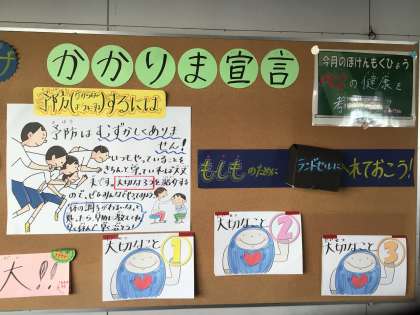 かかりま宣言
今月のほけんもくひょう
の健康を
予防
するには
予防はむずかしくありま
せん!
いつもやっていることを
きちんと守っていれば大丈
夫です。大切な3つを紹介する
ので、ぜひみんなもやってみよう
もしものために
ランドセルに
入れておこう!
大切なこと
1
大切なこと
2
大切なこと
3
大!!